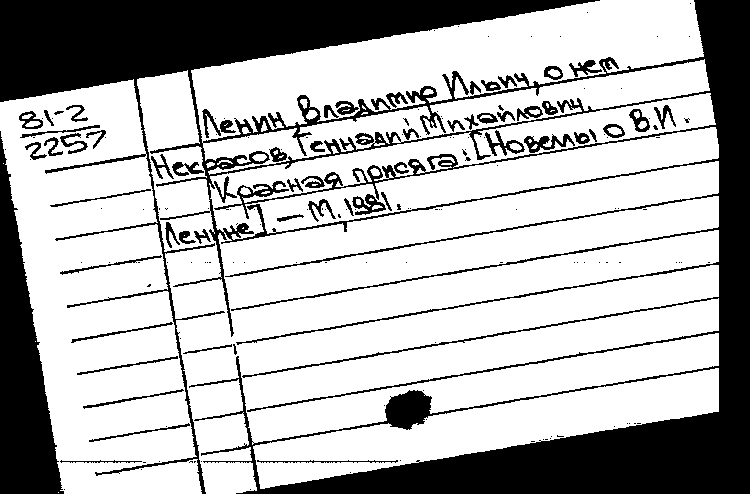 81-2
2257
Ленин, Владимир Ильич, о нем.
Некрасов, Геннадий Михайлович.
Красная присяга: [Новеллы о В.И.
Ленине]. — М., 1981.